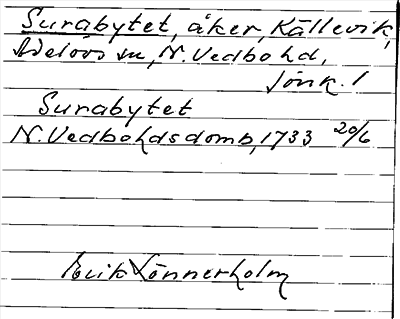 Surabytet, åker, Källevik,
Adelövs sn, N. Vedbo hd,
Jönk. l
Surabytet
N. Vedbohds domb, 1733 20/6
Erik Lönnerholm